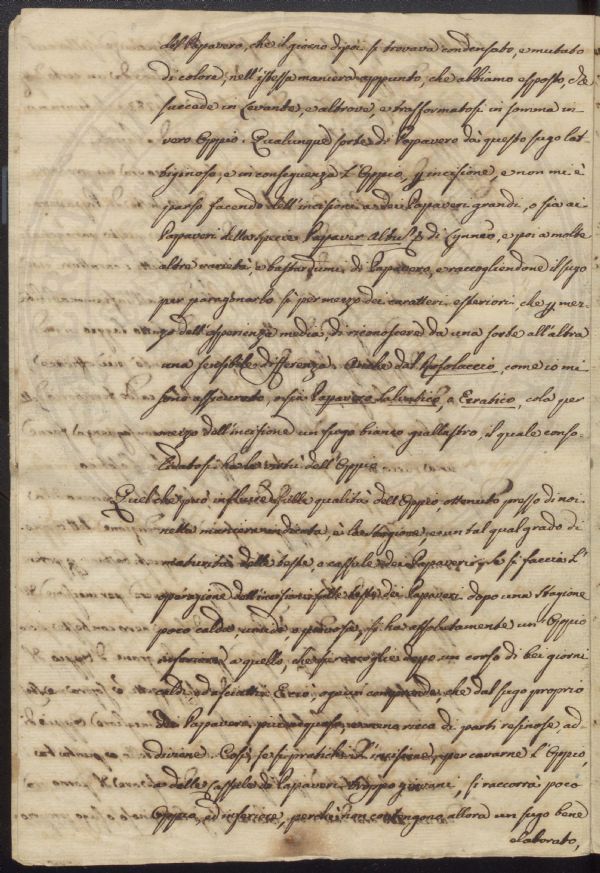 del Papavero, che il giorno dipoi si trovava condensato, e mutato
di colore, nell'istessa maniera appunto, che abbiamo esposto, che
succede in Levante, e altrove, e trasformatosi in somma in
vero Oppio. Qualunque sorte di Papavero dà questo sugo lat-
tiginoso, e in conseguenza l'Oppio, per incisione, e non mi è
parso facendo dell'incisioni a dei Papaveri grandi, o sia ai
Papaveri della specie Papaver Album di Linneo, e poi a molte
altre varietà, e bastardumi di Papavero, e raccogliendone il sugo
per paragonarlo sì per mezzo dei caratteri esteriori, che per mez-
zo dell'esperienza media, di riconoscere da una sorte all'altra
una sensibile differenza. Anche dal Rosolaccio, come io mi
sono assicurato, o sia Papavero salvatico, o Erratico, cola per
mezzo dell'incisione un sugo bianco giallastro, il quale conso-
lidatosi ha le virtù dell'Oppio.
Quel che può influire sulla qualità dell'Oppio, ottenuto presso di noi
nella maniera indicata, è la stagione, e un tal qual grado di
maturità delle teste, o cassule dei Papaveri. Se si faccia l'
operazione dell'incisioni sulle teste dei Papaveri dopo una stagione
poco calda, umida e piovosa, si ha assolutamente un Oppio
inferiore a quello, che si raccoglie dopo un corso di bei giorni
caldi, ed asciutti. Ecco, ognun comprende che dal sugo proprio
del Papavero, più acquoso, e meno ricco di parti resinose, ad-
diviene. Così, se si pratichi l'incisione, per cavarne l'Oppio,
a delle cassule di Papaveri troppo giovani, si raccorrà poco
Oppio, ed inferiore, perchè non contengono allora un sugo bene
elaborato,